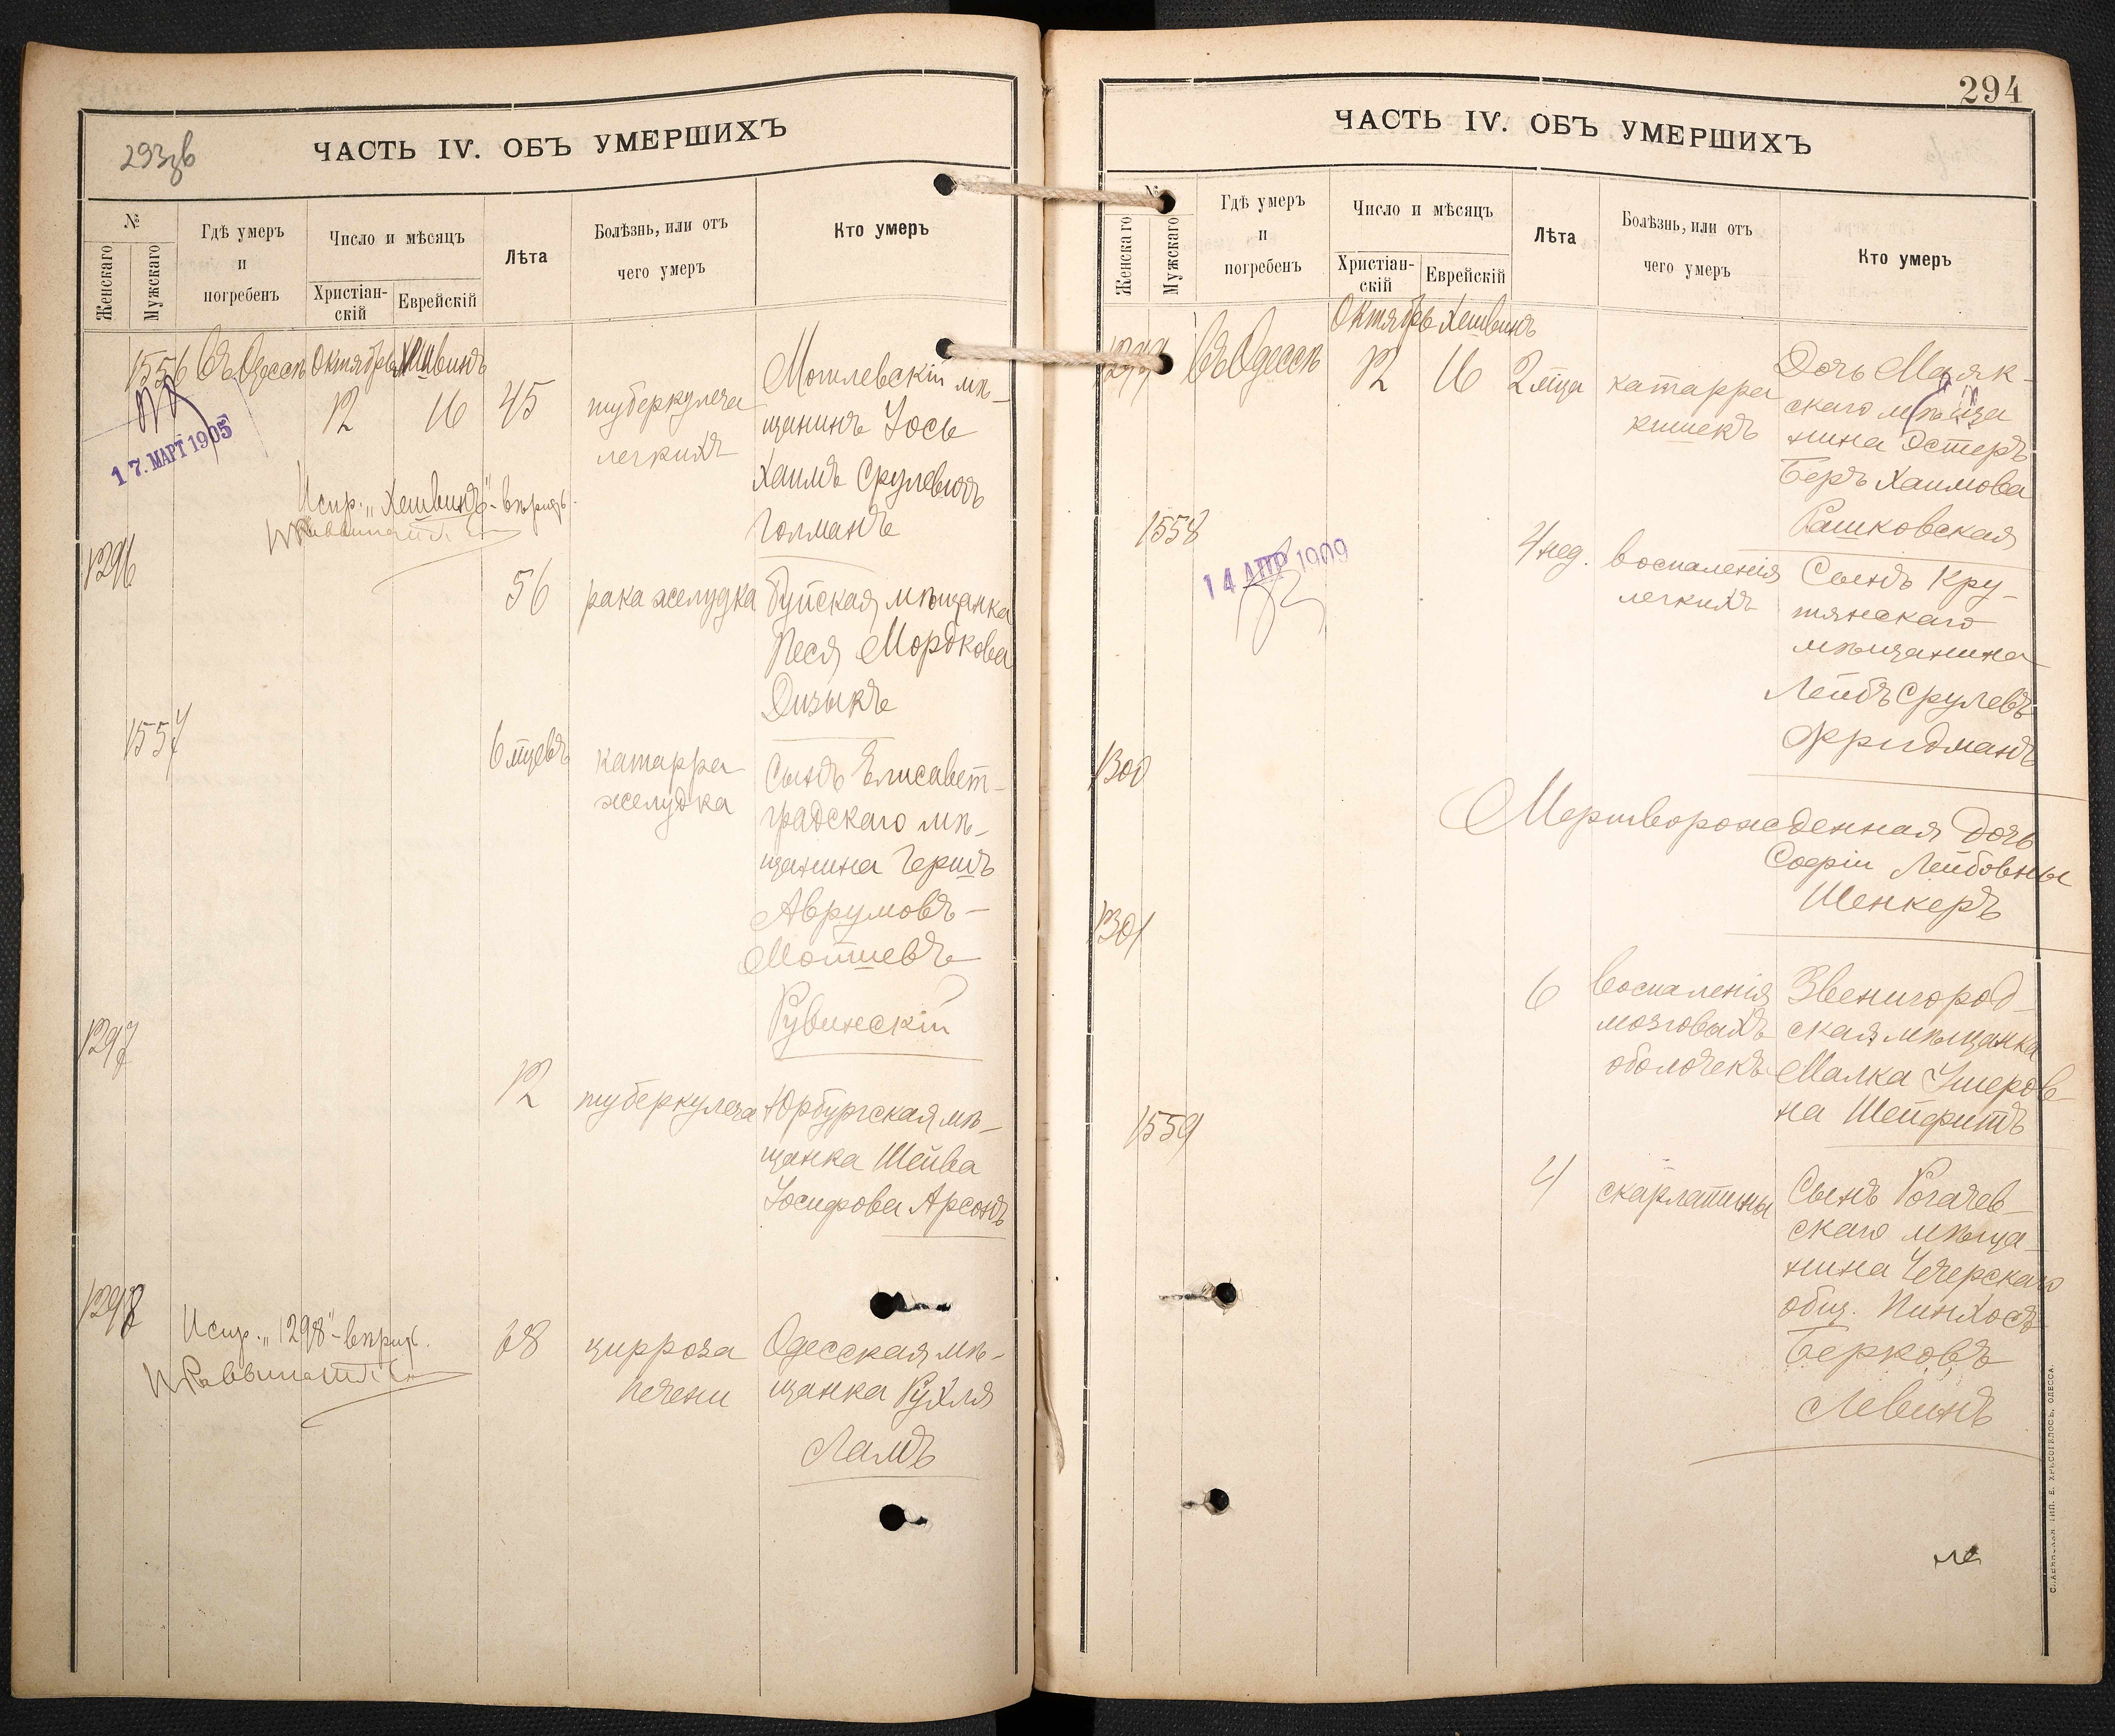 293зв
ЧАСТЬ IV. ОБЪ УМЕРШИХЪ
№
Женскаго
Мужскаго
Гдѣ умеръ
и
погребенъ
Число и мѣсяцъ
Христіан-
скій
Еврейскій
Лѣта
Болѣзнь, или отъ
чего умеръ
Кто умеръ
1556 Въ Одессѣ Октябрь Хешвинъ
12 16 45
туберкулеза
легкихъ
Могилевскій мѣ-
щанинъ Іось
Хаимъ Срулевичъ
Голманъ
17. МАРТ 1905
Испр. „Хешвинъ" - вѣрно.
1296
56 рака желудка
Буйская мѣщанка
Песя Мордкова
Дизыкъ
1557
6 мцевъ
катарра
желудка
Сынъ Елисавет-
градскаго мѣ-
щанина Гершъ
Аврумовъ-
Мошиевъ
Рувинскій
1297
12 туберкулеза
Юрбургская мѣ-
щанка Шейва
Іосифова Арсонъ
1298
Испр. „1298" - вѣрно.
68
цирроза
печени
Одесская мѣ-
щанка Рухля
Ламъ
294
ЧАСТЬ IV. ОБЪ УМЕРШИХЪ
№
Женскаго
Мужскаго
Гдѣ умеръ
и
погребенъ
Число и мѣсяцъ
Христіан-
скій
Еврейскій
Лѣта
Болѣзнь, или отъ
чего умеръ
Кто умеръ
Октябрь Хешвинъ
1299 Въ Одессѣ 12 16 2 мца
катарра
кишекъ
Дочь Маяк-
скаго мѣща
нина Эстеръ
Беръ Хаимова
Рашковская
1558
14 АПР 1909
4 нед.
воспаленія
легкихъ
Сынъ Кру-
тянскаго
мѣщанина
Лейбъ Срулевъ
Фридманъ
1300
Мертворожденная дочь
Софіи Лейбовны
Шенкеръ
1301
6
воспаленія
мозговыхъ
оболочекъ
Звенигород-
ская мѣщанка
Малка Ушеров-
на Шейфитъ
1559
4
скарлатины
Сынъ Рогачев-
скаго мѣща-
нина Чечерскаго
общ. Пинхосъ
Берковъ
Левинъ
СЛАВЯНСКАЯ ТИП. Е. ХРИСОГЕЛОСЪ, ОДЕССА.